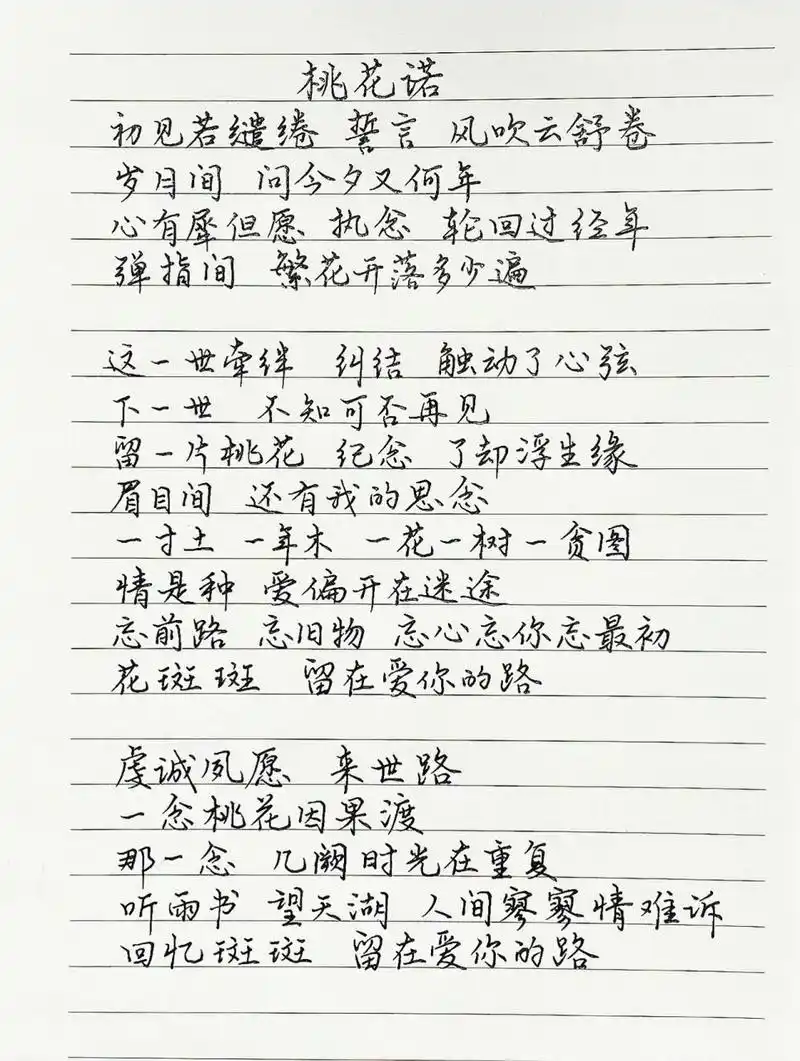 桃花诺
初见若缱绻 誓言 风吹云舒卷
岁月间 问今夕又何年
心有犀但愿 执念 轮回过经年
弹指间 繁花开落多少遍
这一世牵绊 纠结 触动了心弦
下一世 不知可否再见
留一片桃花 纪念 了却浮生缘
眉目间 还有我的思念
一寸土 一年木 一花一树一贪图
情是种 爱偏开在迷途
忘前路 忘旧物 忘心忘你忘最初
花斑斑 留在爱你的路
虔诚夙愿 来世路
一念桃花因果渡
那一念 几阙时光在重复
听雨书 望天湖 人间寥寥情难诉
回忆斑斑 留在爱你的路